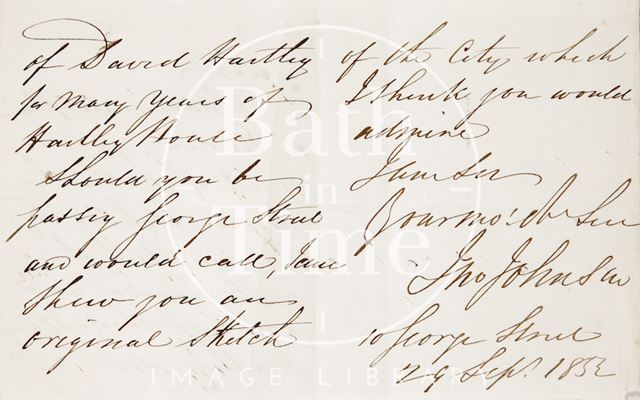 of David Hartley
for Many Years of
Hartley House
Should you be
passing George Street
and would call, I can
Shew you an
original Sketch
of the City which
I think you would
admire
I am Sir
Your mo: Ob Ser
Tho Johnson
10 George Street
29 Sepr. 1852
Bath
in
Time
IMAGE LIBRARY